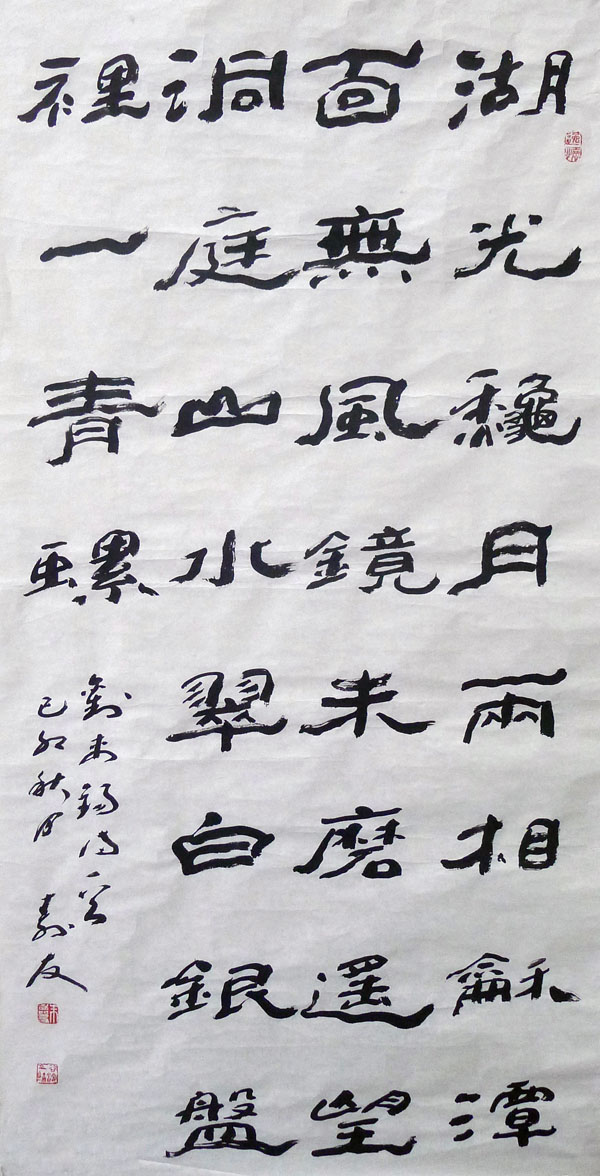 湖光龝月兩相龢潭
面無風鏡未磨遙望
洞庭山水翠白銀盤
裡一青螺
劉禹錫詩一首
己卯秋月